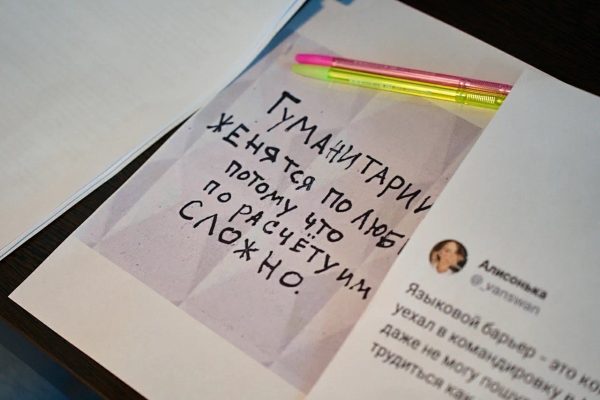 ГУМАНИТАРИИ
ЖЕНЯТСЯ ПО ЛЮБ
ПОТОМУ ЧТО
ПО РАСЧЁТУ ИМ
СЛОЖНО.
Алисонька
@_vanswan
Языковой барьер - это ко
уехал в командировку в
даже не могу пошу
трудиться как